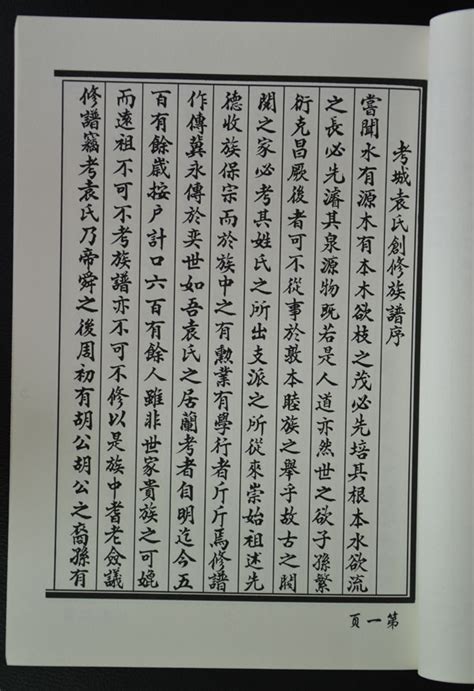 考城袁氏創修族譜序
嘗聞水有源木有本木欲枝之茂必先培其根本水欲流
之長必先濬其泉源物既若是人道亦然世之欲子孫繁
衍克昌厥後者可不從事於敦本睦族之舉乎故古之閥
閱之家必考其姓氏之所出支派之所從來崇始祖述先
德收族保宗而於族中之有勲業有學行者斤斤焉修譜
作傳冀永傳於奕世如吾袁氏之居蘭考者自明迄今五
百有餘歲按户計口六百有餘人雖非世家貴族之可媲
而遠祖不可不考族譜亦不可不修以是族中耆老僉議
修譜竊考袁氏乃帝舜之後周初有胡公胡公之裔孫有
第一頁